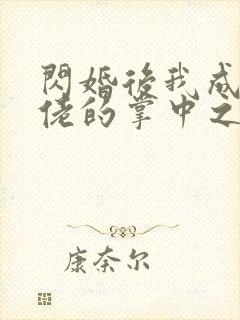 閃婚後我成
佬的掌中之
康奈尔